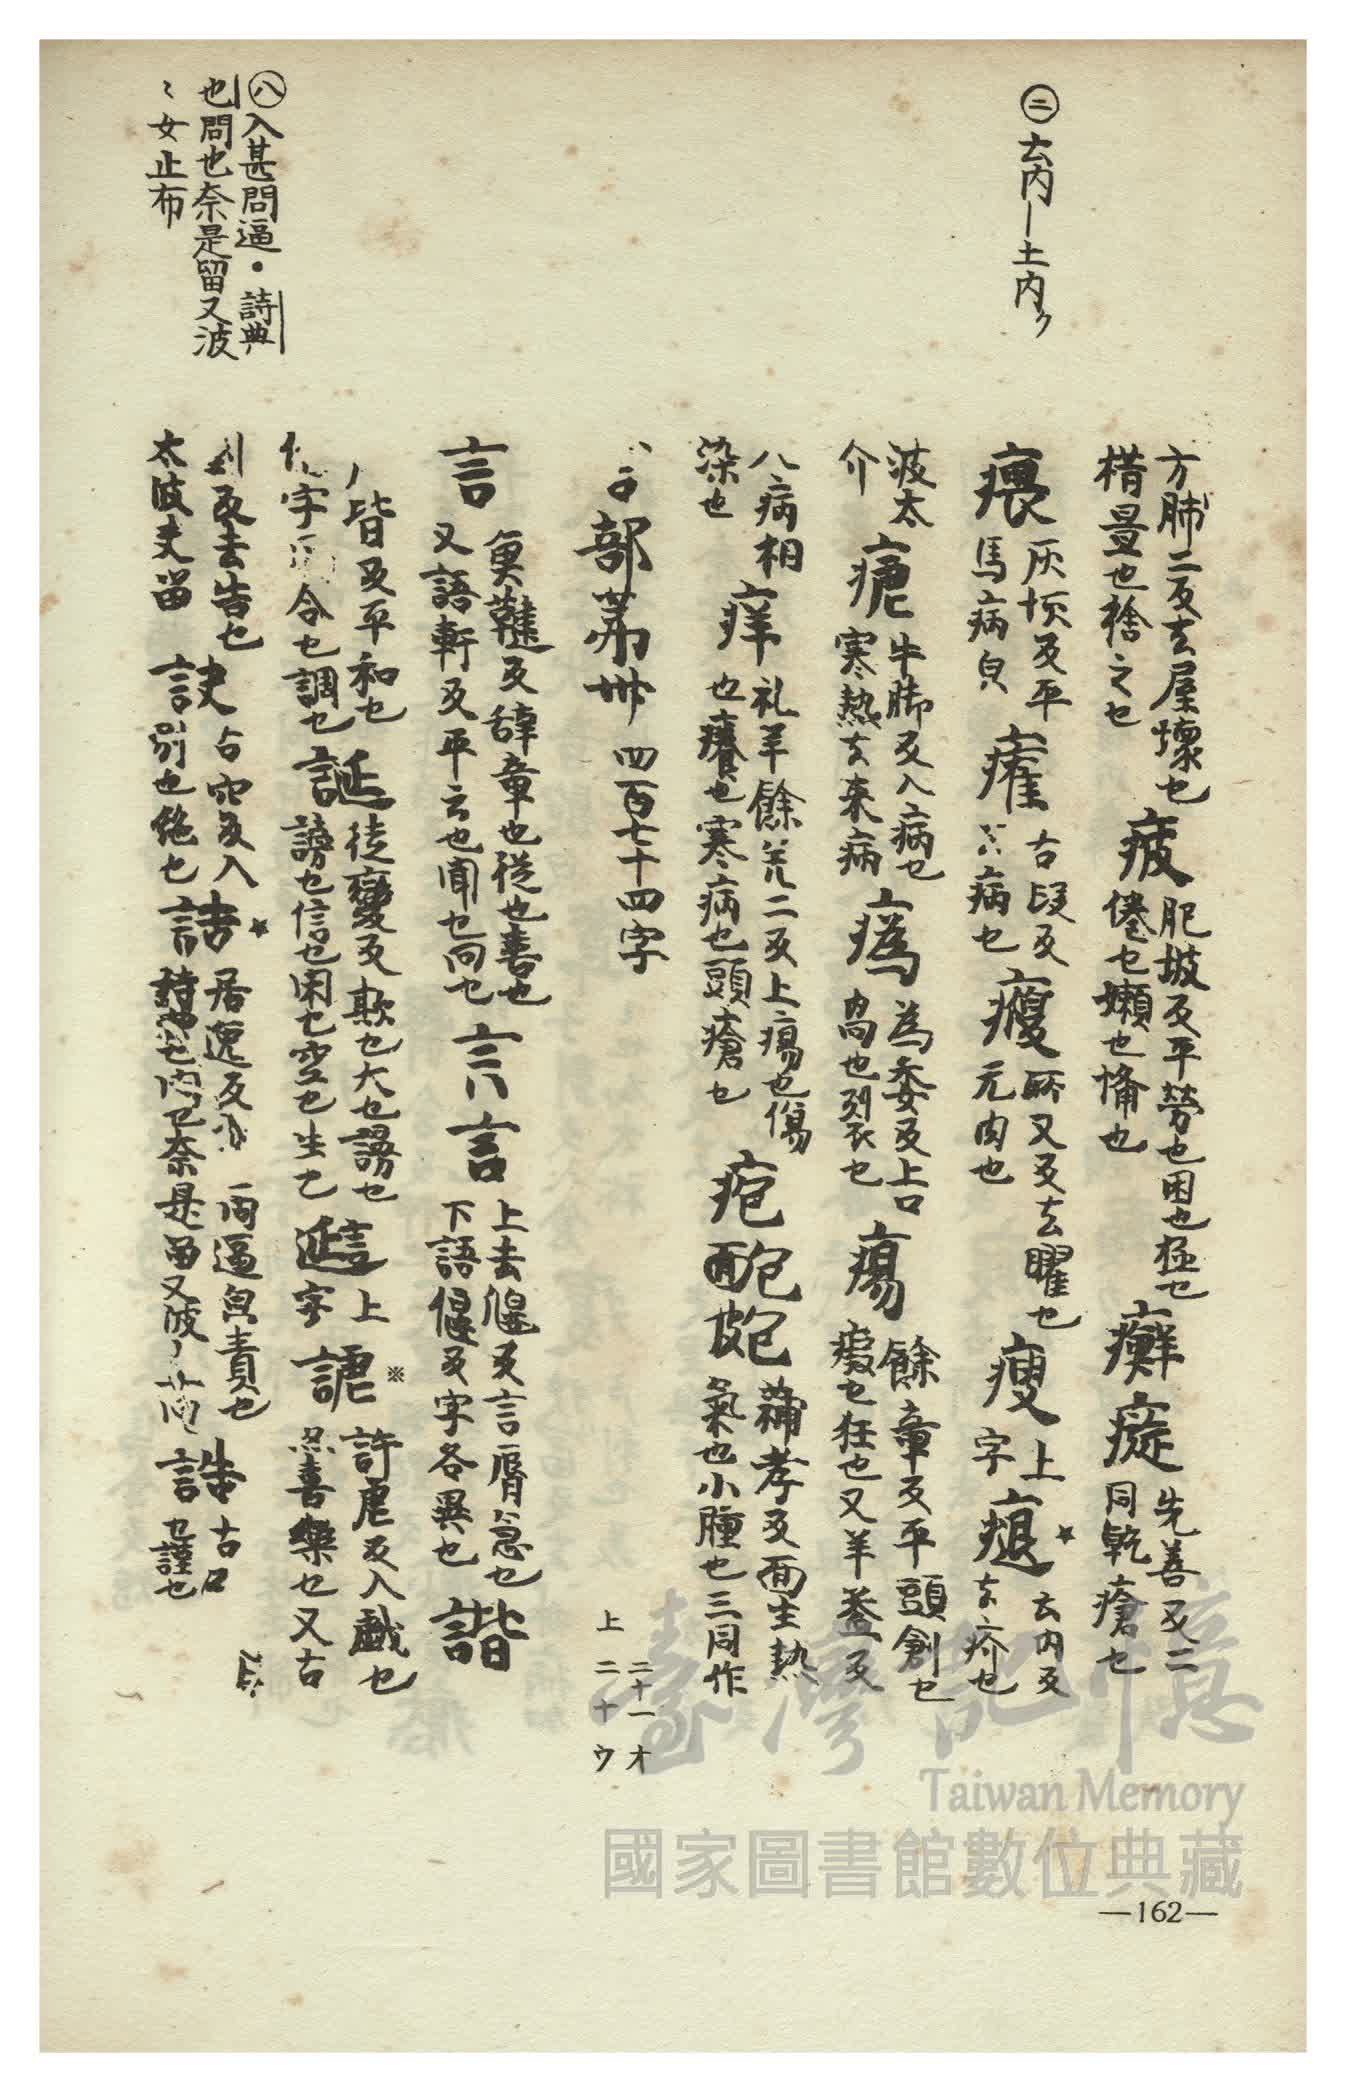 ㊁ 去内ー土内ク
㊇入甚問逼・詩典
也問也奈是留又波
〻女止布
方肺二反去屋壞也
楷量也捨之也
疲
肥坡反平勞也困也極也
倦也嬾也惰也
癬瘥
先善反二
同乾瘡也
㾯
灰頄反平
馬病皃
㿒
古段反
病也
癁
所又反去臞也
元肉也
瘦
上
字
㾼
去内反
去疥也
波太
介
瘧
牛脚反入病也
寒熱去来病
㾻
為委反上口
咼也裂也
瘍
餘章反平頭創也
瘕也狂也又羊益反
八病相
染也
痒
礼羊餘 二反上瘍也傷
也癢也寒病也頭瘡也
疱靤皰
蒲孝反面生熱
氣也小腫也三同作
言部第卅 四百七十四字
二十一オ
上 二十ウ
言
魚鞬反辞章也從也喜也
又語軒反平云也聞也问也
言言
上去偃反言脣急也
下語偃反字各異也
諧
皆反平和也
字 合也調也
誕
徒變反欺也大也謾也
謗也信也困也空也生也
𨔝
上
字
謔
許虐反入戲也
喜樂也又古
反去告也
太波夫留
訣
古穴反入
別也絶也
詰
居逸反入 問逼皃責也
也問也奈是留又波
誥
古
也謹也
臺灣記憶
Taiwan Memory
國家圖書館數位典藏
—162—